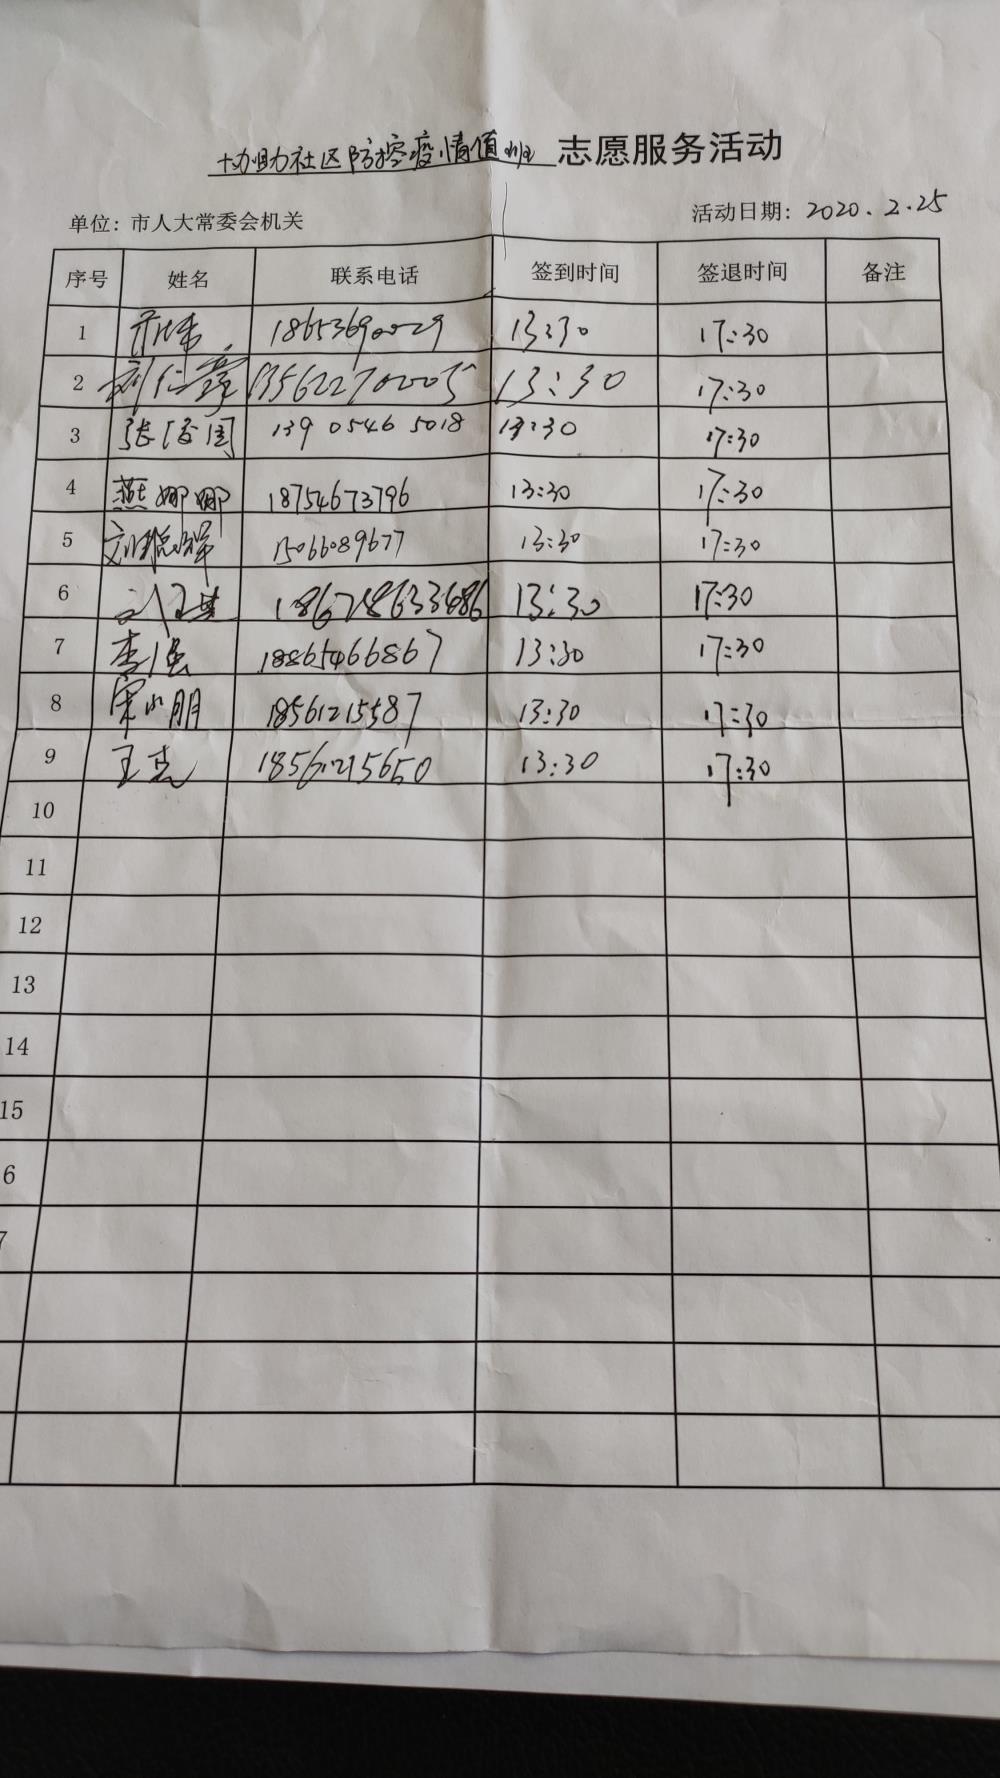 协助社区防控疫情值班 志愿服务活动
单位：市人大常委会机关 活动日期：2020.2.25
序号 姓名 联系电话 签到时间 签退时间 备注
1 18653690029 13:30 17:30
2 13562270005 13:30 17:30
3 139 0546 5018 13:30 17:30
4 燕娜娜 18754673796 13:30 17:30
5 15066089677 13:30 17:30
6 18678633686 13:30 17:30
7 李强 18865466867 13:30 17:30
8 宋小朋 18561215587 13:30 17:30
9 王杰 18561215650 13:30 17:30
10
11
12
13
14
15
6
7